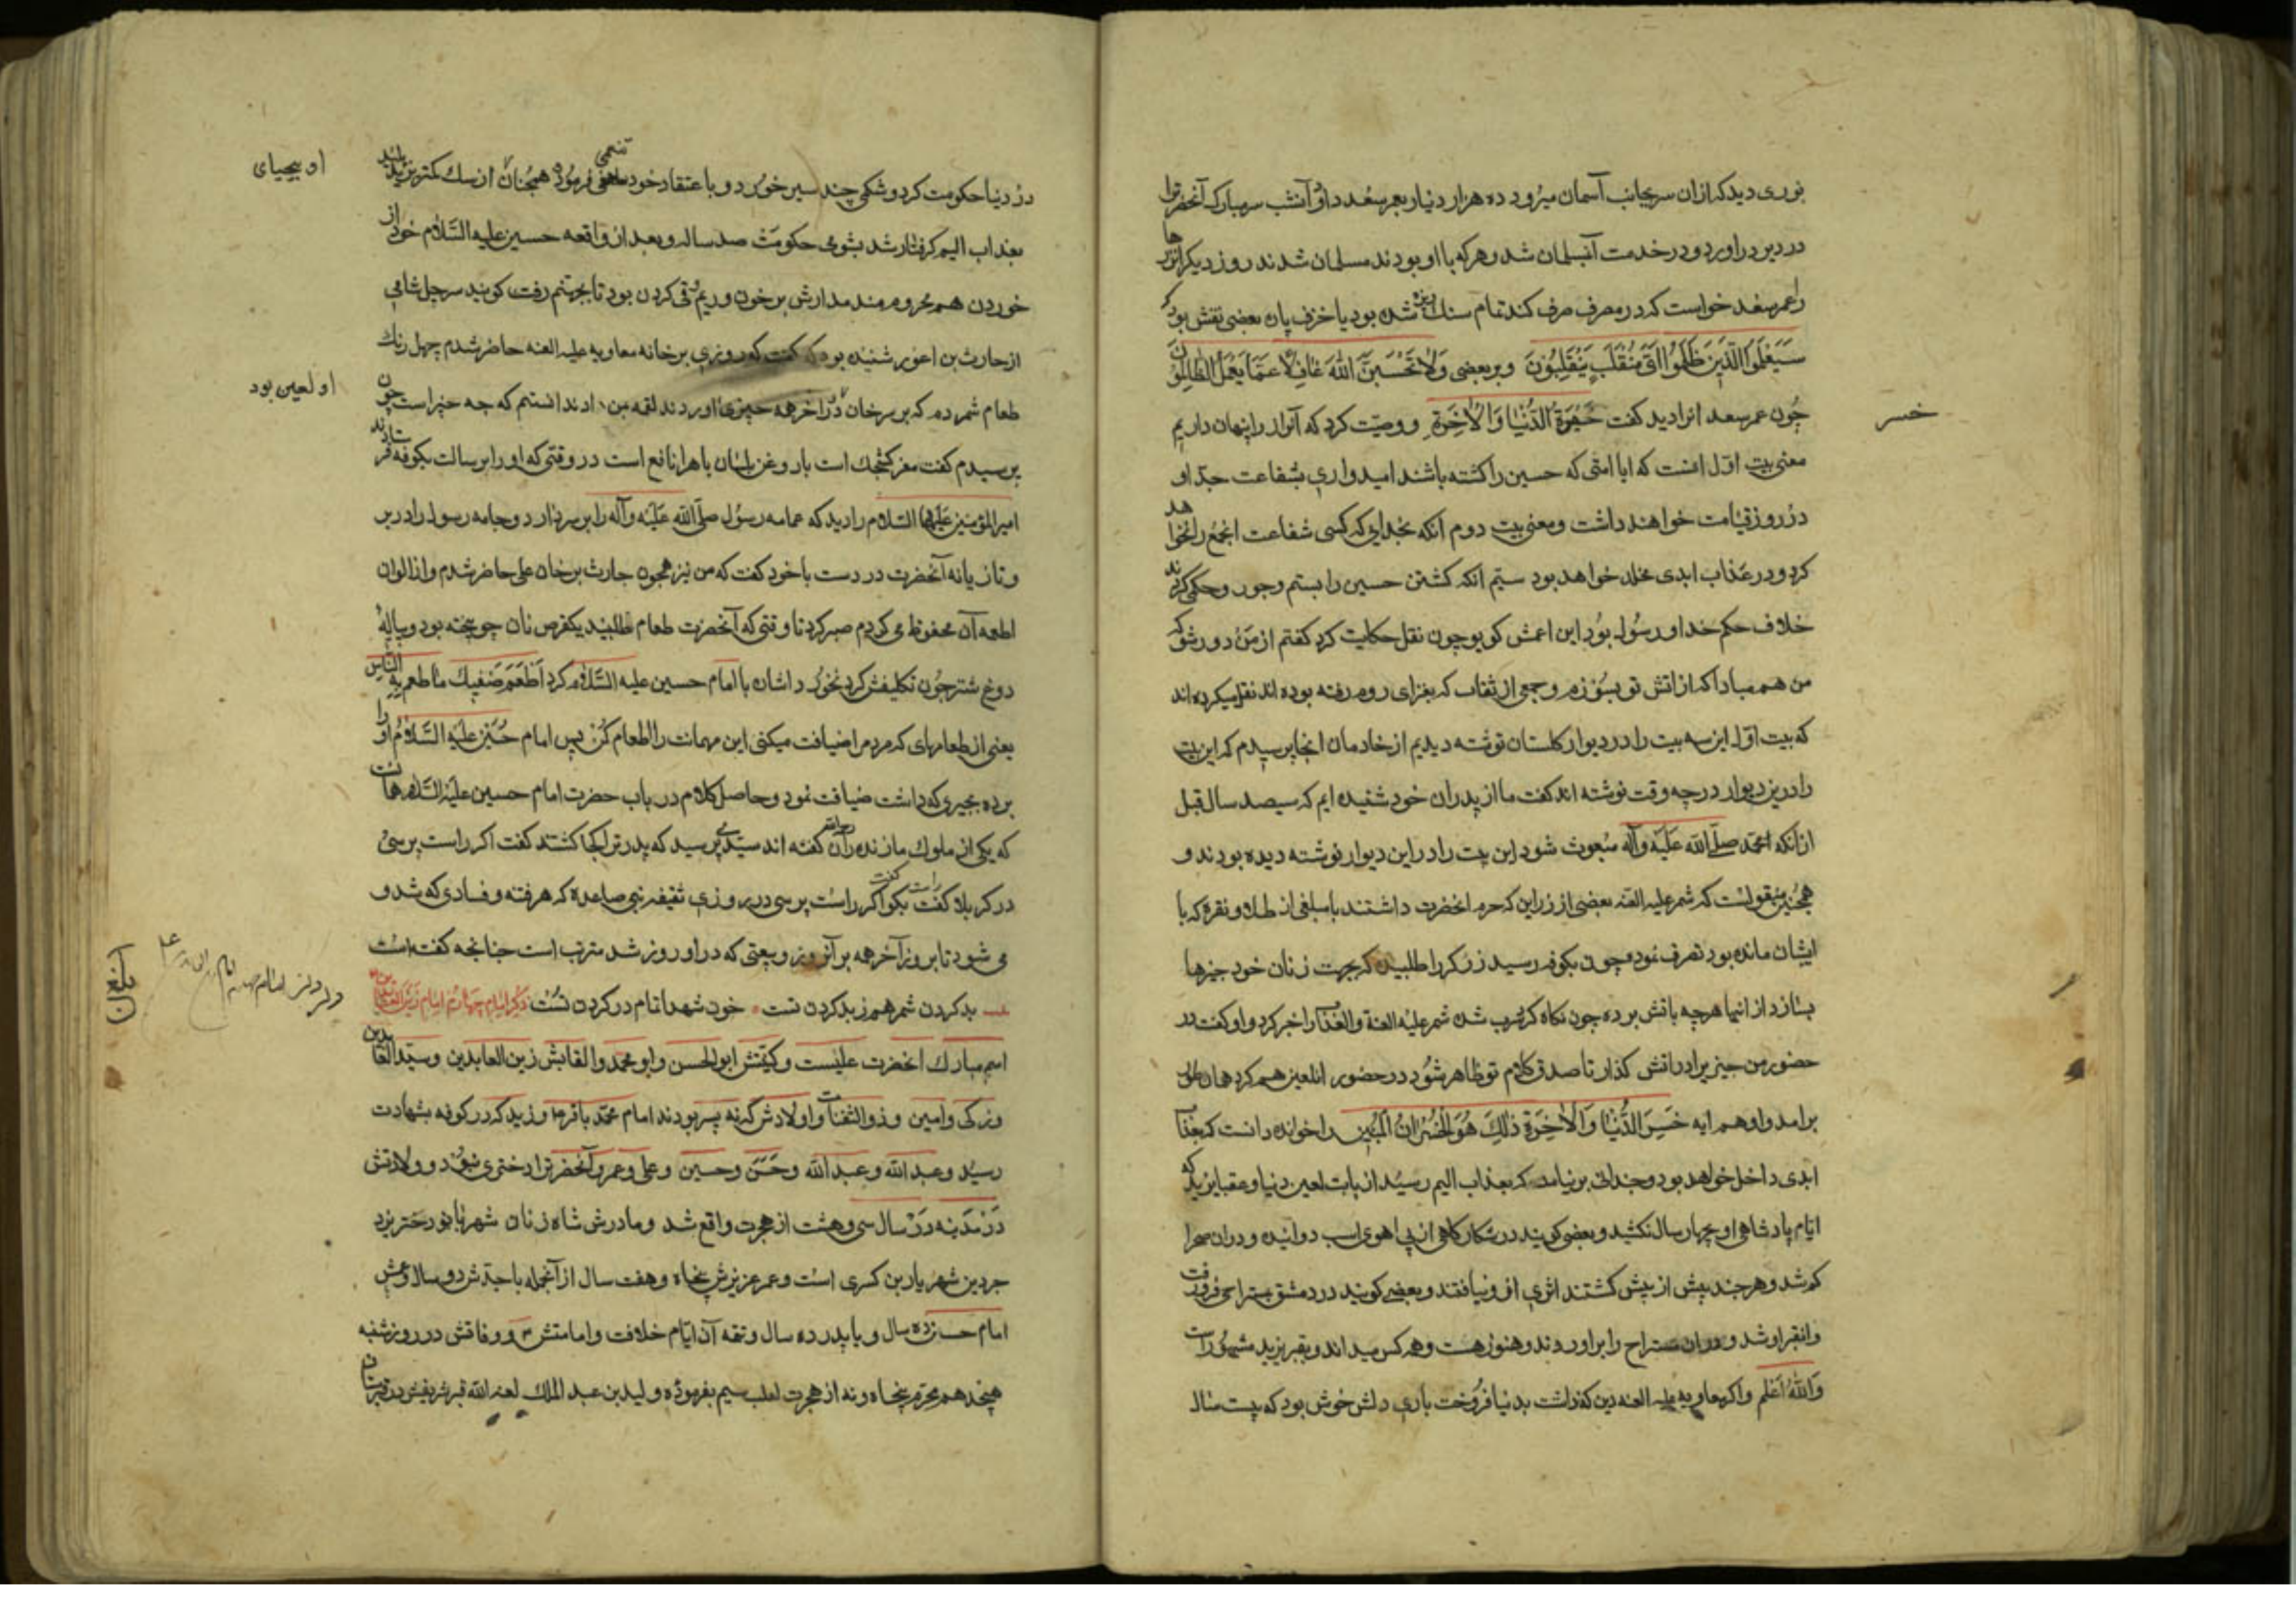 نوری دید که ازان سر بجانب آسمان میرود ده هزار دنیار بعمر سعد داد و آنشب سر مبارک آنحضرترا
در دیر دراورد و در خدمت آنسلمان شد و هر که با او بودند مسلمان شدند روز دیکر انزرها
را عمر سعد خواست که در مصرف صرف کند تمام سنك ریزه شده بود یا خزف پاره بعضی نقش بود که
سَيَعْلَمُ الَّذِينَ ظَلَمُوا اَىَّ مُنْقَلَبٍ يَنْقَلِبُونَ وبر بعضی وَلَا تَحْسَبَنَّ اللّٰهَ غَافِلًا عَمَّا يَعْمَلُ الظَّالِمُونَ
چون عمر سعد انرا دید کفت خَسِرَةَ الدُّنْيَا وَالْاٰخِرَةِ و وصیّت کرد که آنراز را پنهان داریم
خسر
معنی بیت اوّل انست که ایا امتی که حسین را کشته باشند امیدواری بشفاعت جدّ او
در روز قیامت خواهند داشت ومعنی بیت دوم انکه بخدای که کسی شفاعت انجمع را نخواهد
کرد و در عذاب ابدی مخلد خواهد بود سیّم انکه کشتن حسین را بستم وجور وحکمی کردند
خلاف حکم خدا و رسول بود ابن اعمش کوید چون نقل حکایت کرد کفتم از من دور شو که
من هم مبادا که از اتش تو بسوزم و جمعی از ثقات که بغزای روم رفته بوده اند نقل میکرده اند
که بیت اوّل این سه بیت را در دیوار کلستان نوشته دیدیم از خادمان انجا پرسیدم که این بیت
را درین دیوار در چه وقت نوشته اند کفت ما از پدران خود شنیده ایم که سیصد سال قبل
از انکه محمّد صلّی الله علیه وآله مبعوث شود این بیت را در این دیوار نوشته دیده بودند و
همچنین منقولست که شمر علیه العنه بعضی از زر این که حرم انحضرت داشتند با مبلغی از طلا و نقره که با
ایشان مانده بود تصرف نمود و چون بکوفه رسید زرکر را طلبید که بجهت زنان خود چیزها
بسازد از انها هرچه باتش برده چون نکاه کرد شرب شده شمر علیه العنة والعذاب را خبر کرد و او کفت در
حضور من چیز یرا در اتش کذار تا صدق کلام تو ظاهر شود در حضور انلعین هم کرد همان طور
برامد و او هم ایه خَسِرَ الدُّنْيَا وَالْاٰخِرَةِ ذٰلِكَ هُوَ الْخُسْرَانُ الْمُبِينُ را خوانده دانست که بعذاب
ابدی داخل خواهد بود و چندانی بر نیامد که بعذاب الیم رسید از بابت لعین دنیا و عقبا یزید که
ایّام پادشاهی او بچهار سال نکشید و بعضی کویند در شکار کاهی از پی اهوی اسب دوانیده و دران صحرا
کم شد و هر چند بیش از بیش کشتند اثری از و نیافتند و بعضی کویند در دمشق بمتراحی فرو رفت
وانقر اوشد و دران متراح را براوردند و هنوز هست وهمه کس میداند و بقبر یزید مشهور است
وَاللّٰهُ اَعْلَم واکر معاویه علیه العنه دین کذاشت بدنیا فروخت باری دلش خوش بود که بیست سال
در دنیا حکومت کرد و شکمی چند سیر خورد و با عتقاد خود تنعمی فرمود همچنان از سك کمتر یزید پلید
او بیحیای
بعذاب الیم کرفتار شد بشومی حکومت صد ساله و بعد از واقعه حسین علیه السّلام خود از
خوردن هم محروم مند مدارش بر خون وریم قی کردن بود تا بجهنّم رفت کویند سرجل شامی
از حارث بن اعور شنیده بود که کفت که روزی بر خانه معاویه علیه العنه حاضر شدم چهل رنك
طعام شمردم که بر سر خان در اخر همه چیزی اوردند لقمه بمن دادند ندانستم که چه چیز است چون
او لعین بود
پرسیدم کفت مغز کنجشك است با روغن بلسان باهرا نافع است در وقتی که اورا برسالت بکوفه فرستادند
امیر المؤمنین علیهما السّلام را دید که عمامه رسول صلّی الله علیه وآله را بر سر دارد و جامه رسول را در بر
و تازیانه آنحضرت در دست با خود کفت که من نیز همچون حارث بر خان علی حاضر شدم واز الوان
اطعمه آن محفوظ می کردم صبر کرد تا وقتی که آنحضرت طعام طلبید یکقرص نان جو پخته بود و پیاله
دوغ شتر چون تکلیفش کرد نخورد اشان با امام حسین علیه السّلام کرد اَطْعِمْ ضَيْفَكَ مَا طعم بِهِ النَّاسِ
یعنی از طعامهای که مردم را ضیافت میکنی این مهمانت را اطعام کن پس امام حسین علیه السّلام او را
برده بچیزی که داشت ضیافت نمود و حاصل کلام در باب حضرت امام حسین علیه السّلام همانست
که یکی از ملوك مازندران کفته اند سیّدی پرسید که پدرترا کجا کشتند کفت اکر راست پرسی
در کربلا کفت بکو راست کفت اکر راست پرسی در روزی ثقیفه بنی صاعده که هر فتنه و فسادی که شد و
می شود تا بروز آخر همه بر آنروز و بیعتی که دراو روز شد مترتب است چنانچه کفت است
بد کردن شمر هم ز بد کردن تست خون شهدا تمام در کردن تست ذکر امام چهارم امام زین العابدین
اسم مبارك انحضرت علیست وکنیتش ابوالحسن وابو محمد والقابش زین العابدین وسیّد العابدین
وزکی وامین وذوالثفنات واولادش که نه پسر بودند امام محمّد باقر وزید که در کوفه بشهادت
رسید وعبد الله وعبد الله وحسن وحسین وعلی وعمر وآنحضرترا دختری نبود و ولادتش
در مدینه در سال سی وهشت از هجرت واقع شد ومادرش شاه زنان شهر بانو دختر یزد
جرد بن شهریار بن کسری است وعمر عزیزش پنجاه وهفت سال از آنجمله با جدّش دو سال وعمش
امام حسن ده سال و با پدر ده سال وتتمه آن ایّام خلافت وامامتش ووفاتش در روز شنبه
هیجدهم محرّم پنجاه ونه از هجرت سیم بفرموده ولید بن عبد الملك لعنه الله قبر شریفش در قبرستان
بلغ